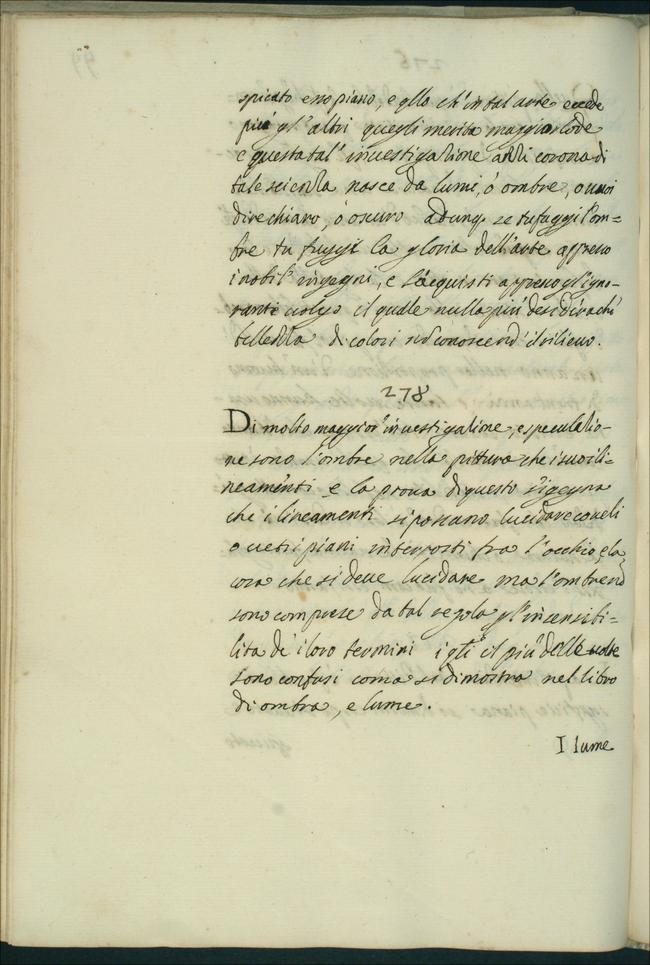 spicato e no piano, e qllo ch' in tal arte ecede
più gl' altri quegli merita maggior lode
e questa tal' investigatione anzi corona di
tale scienza nasce da lumi, ò ombre, o uuoi
dire chiaro, ò oscuro adunq. se tu fuggi l'om=
bre tu fuggi la gloria dell'arte appreso
i nobil' ingegni, e l'acquisti appreso gl'igno=
ranti uolgo il qualle nulla più desidera ch'
bellezza di colori nō conoscend' il rilieuo.
278
Di molto maggior' inuestigatione, e speculatio=
ne sono l'ombre nella pittura che i suoi li=
neamenti e la proua di questo s'igegna
che i lineamenti si possano lucidare co ueli
o uetri piani interposti fra l'occhio e la
cosa che si deue lucidare ma l'ombre nō
sono comprese da tal regola p l'incensibi=
lita de' i loro termini i qli il più delle uolte
sono confusi coma si dimostra nel libro
di ombra, e lume.
Il lume